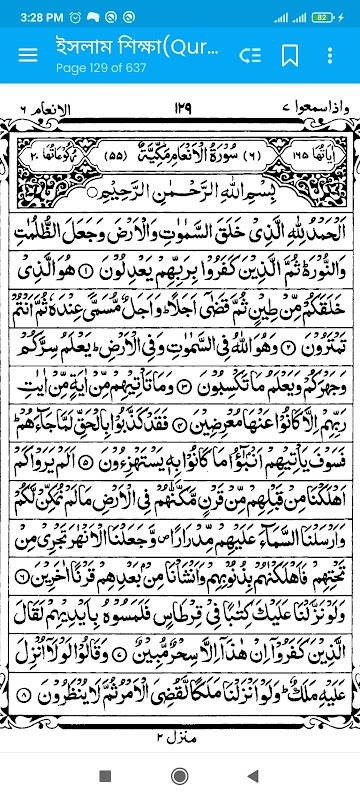 3:28 PM
82
ইসলাম শিক্ষা(Qur...
Page 129 of 637
واذاسمعوا ٧
١٢٩
الانعام ٦
اٰيَاتُهَا ١٦٥
(٦) سُوْرَةُ الْاَنْعَامِ مَكِّيَّةٌ (٥٥)
رُكُوْعَاتُهَا ٢٠
بِسْمِ اللهِ الرَّحْمٰنِ الرَّحِيْمِ
اَلْحَمْدُ لِلّٰهِ الَّذِيْ خَلَقَ السَّمٰوٰتِ وَالْاَرْضَ وَجَعَلَ الظُّلُمٰتِ
وَالنُّوْرَ ثُمَّ الَّذِيْنَ كَفَرُوْا بِرَبِّهِمْ يَعْدِلُوْنَ ١ هُوَ الَّذِيْ
خَلَقَكُمْ مِّنْ طِيْنٍ ثُمَّ قَضٰى اَجَلًا ط وَاَجَلٌ مُّسَمًّى عِنْدَهٗ ثُمَّ اَنْتُمْ
تَمْتَرُوْنَ ٢ وَهُوَ اللهُ فِي السَّمٰوٰتِ وَفِي الْاَرْضِ ط يَعْلَمُ سِرَّكُمْ
وَجَهْرَكُمْ وَيَعْلَمُ مَا تَكْسِبُوْنَ ٣ وَمَا تَاْتِيْهِمْ مِّنْ اٰيَةٍ مِّنْ اٰيٰتِ
رَبِّهِمْ اِلَّا كَانُوْا عَنْهَا مُعْرِضِيْنَ ٤ فَقَدْ كَذَّبُوْا بِالْحَقِّ لَمَّا جَآءَهُمْ ط
فَسَوْفَ يَاْتِيْهِمْ اَنْۢبٰٓؤُا مَا كَانُوْا بِهٖ يَسْتَهْزِءُوْنَ ٥ اَلَمْ يَرَوْا كَمْ
اَهْلَكْنَا مِنْ قَبْلِهِمْ مِّنْ قَرْنٍ مَّكَّنّٰهُمْ فِي الْاَرْضِ مَا لَمْ نُمَكِّنْ لَّكُمْ
وَاَرْسَلْنَا السَّمَآءَ عَلَيْهِمْ مِّدْرَارًا ص وَّجَعَلْنَا الْاَنْهٰرَ تَجْرِيْ مِنْ
تَحْتِهِمْ فَاَهْلَكْنٰهُمْ بِذُنُوْبِهِمْ وَاَنْشَاْنَا مِنْۢ بَعْدِهِمْ قَرْنًا اٰخَرِيْنَ ٦
وَلَوْ نَزَّلْنَا عَلَيْكَ كِتٰبًا فِيْ قِرْطَاسٍ فَلَمَسُوْهُ بِاَيْدِيْهِمْ لَقَالَ
الَّذِيْنَ كَفَرُوْٓا اِنْ هٰذَآ اِلَّا سِحْرٌ مُّبِيْنٌ ٧ وَقَالُوْا لَوْلَآ اُنْزِلَ
عَلَيْهِ مَلَكٌ ط وَلَوْ اَنْزَلْنَا مَلَكًا لَّقُضِيَ الْاَمْرُ ثُمَّ لَا يُنْظَرُوْنَ ٨
منزل ٢